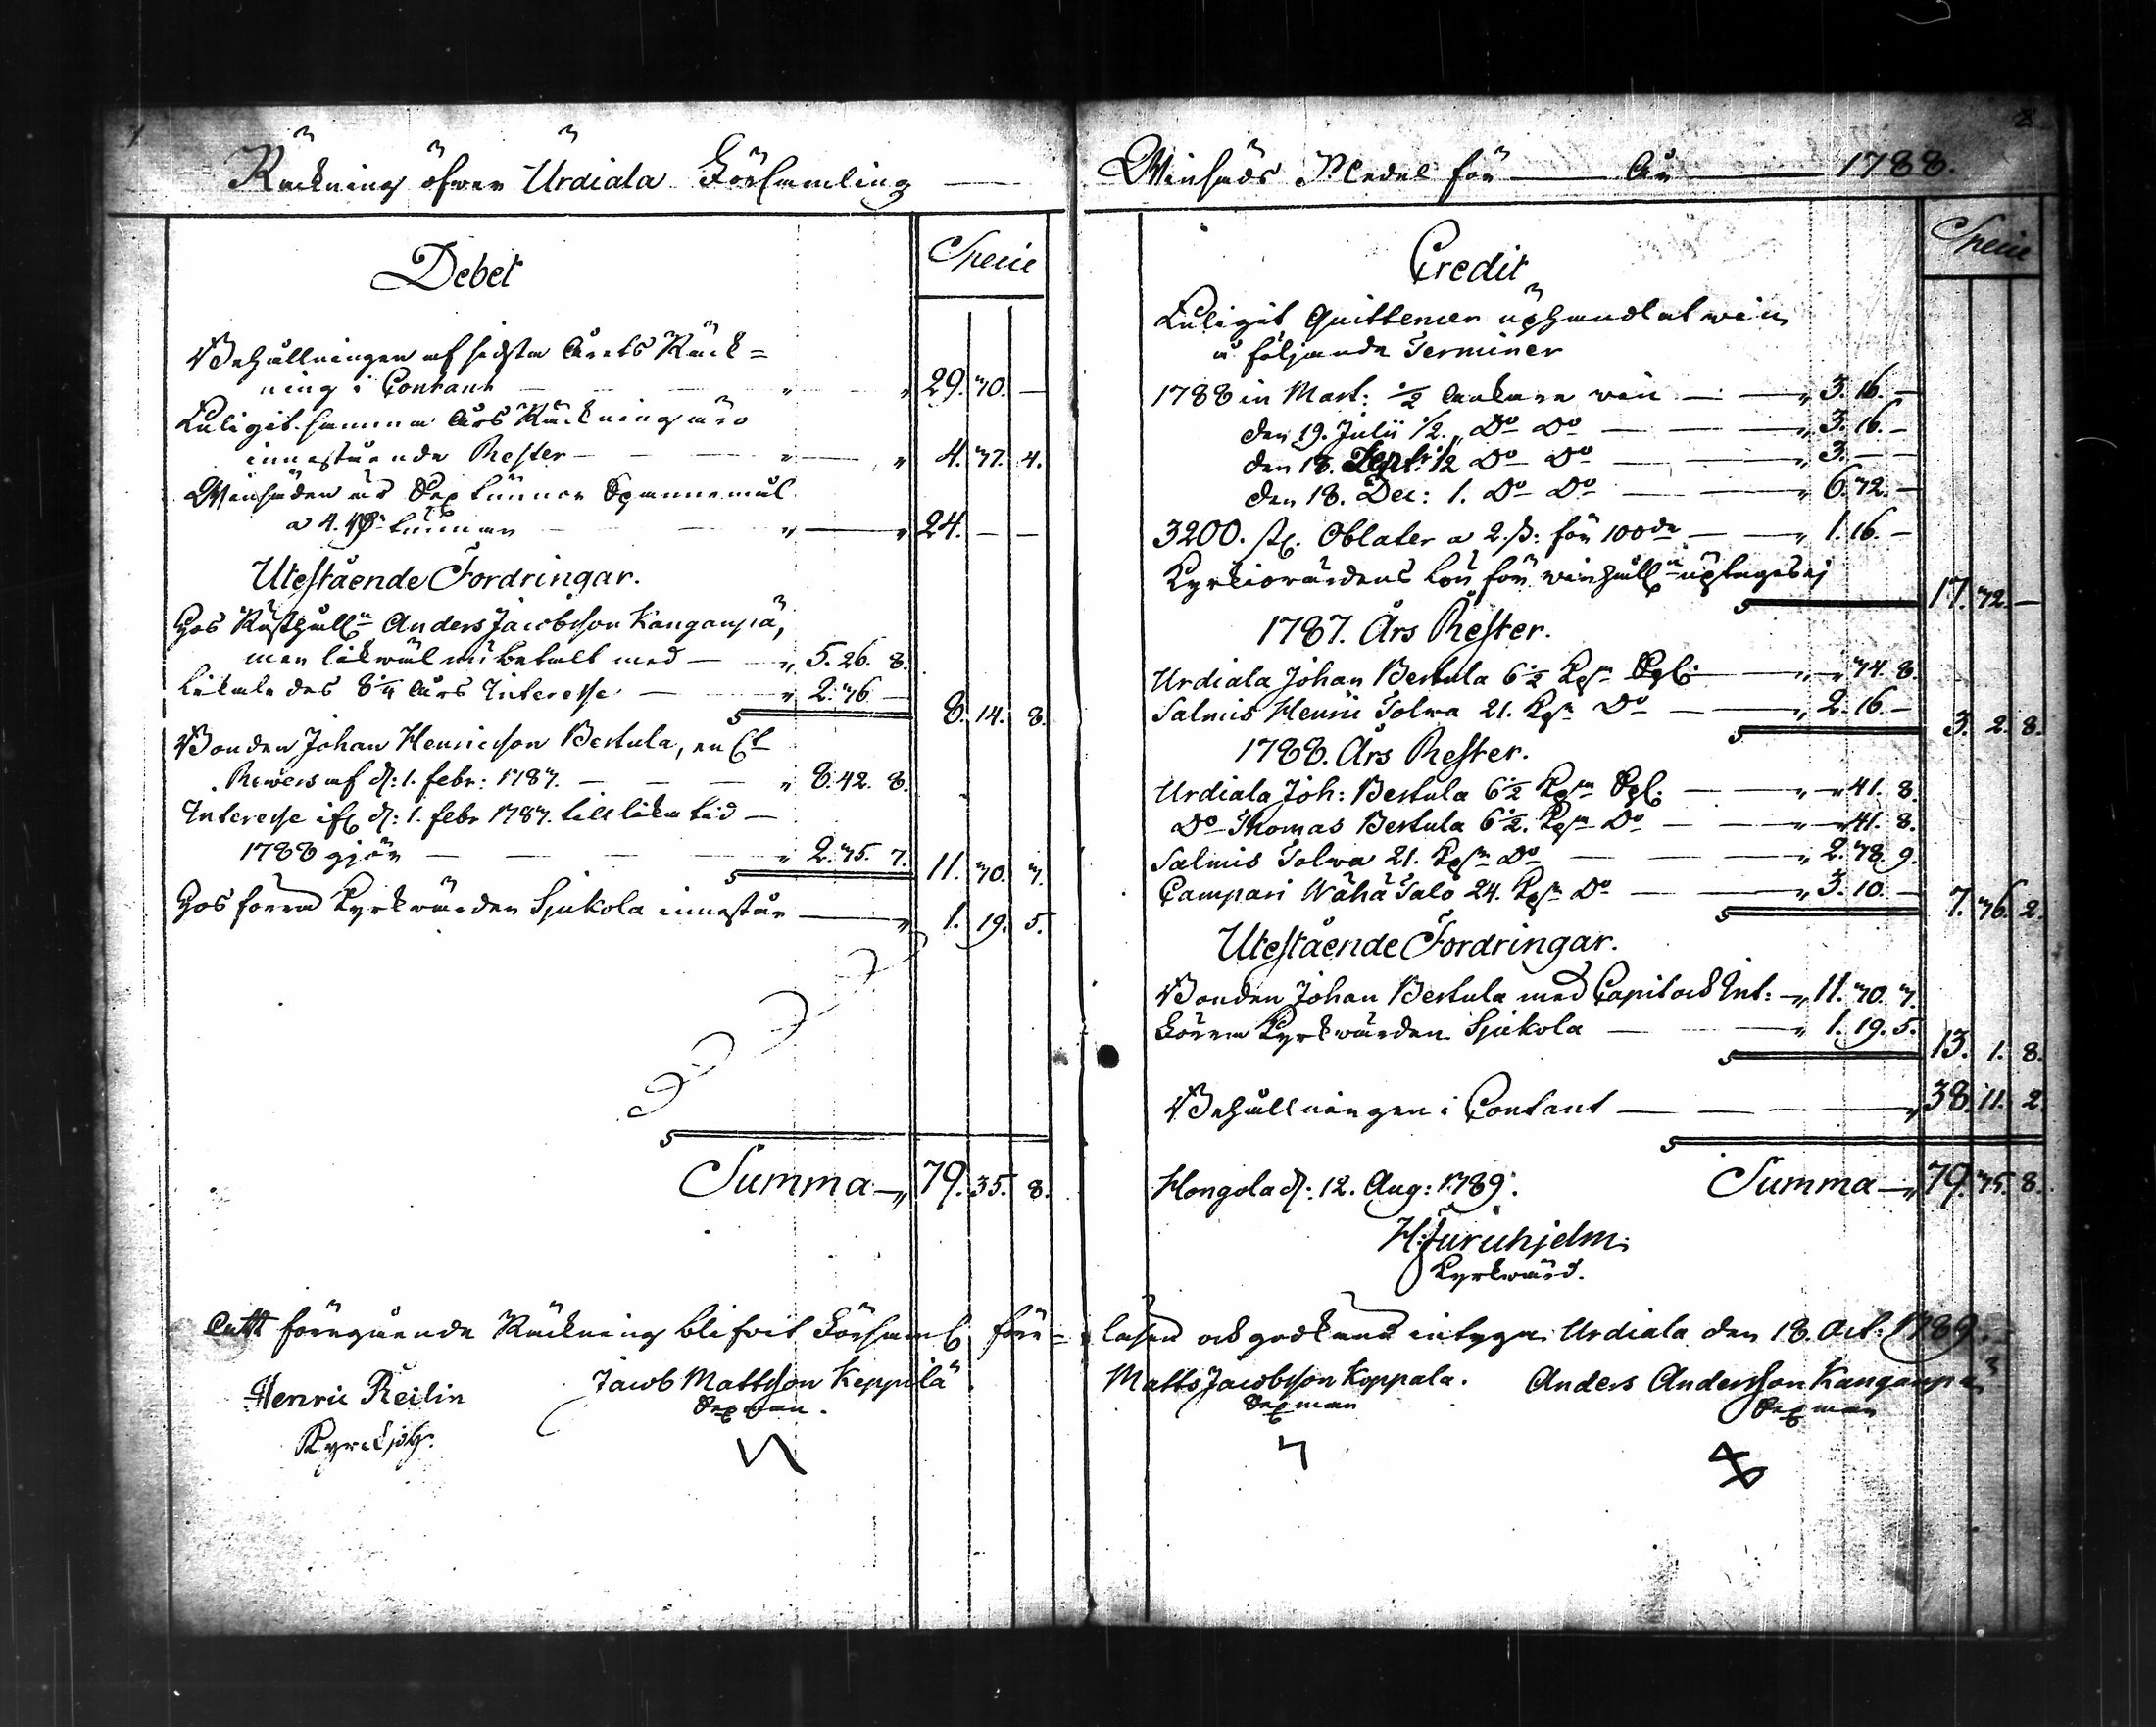 Räckning öfwer Urdiala Församling
Debet
Specie
Behållningen af sidsta Årets Räck=
ning i Contant 29. 70. —
Enligit samma Års Räckning äro
innestående Rester 4. 77. 4.
Winsäden är Sex tunnor Spannemål
a 4. tunnan 24. — —
Utestående Fordringar.
Hos Rusthålln Anders Jacobsson Kanganpä,
men likwäl nu betalt med 5. 26. 8.
likaledes 8¼ Års Interesse 2. 76 —
8. 14. 8.
Bonden Johan Henricsson Bertula, en
Revers af d: 1. febr: 1787. 8. 42. 8.
Interesse ifr d: 1. febr 1787. till lika tid
1788 giör 2. 75. 7.
11. 70. 7.
Hos förra Kyrkwärden Sjukola innestår 1. 19. 5.
Summa 79. 35. 8.
Winsäds Medel för År 1788.
Credit
Specie
Enligit Quittencer uphandlat win
å följande Terminer
1788 in Mart: ½ Ankare win 3. 16. —
den 19. Julii ½. Do Do 3. 16. —
den 18. Septr: ½ Do Do 3. — —
den 18. Dec: 1. Do Do 6. 72. —
3200. st. Oblater a 2. ß: för 100de 1. 16. —
Kyrkiowärdens lön för winhålln uptages ej
17. 72. —
1787. Års Rester.
Urdiala Johan Bertula 6½ Kpr Spl: 74. 8.
Salmis Henric Tolwa 21. Kpr Do 2. 16. —
3. 2. 8.
1788. Års Rester.
Urdiala Joh: Bertula 6½ Kpr Spl. 41. 8.
Do Thomas Bertula 6½. Kpr Do 41. 8.
Salmis Tolwa 21. Kpr Do 2. 78. 9.
Campari Wähä Talo 24. Kpr Do 3. 10. —
7. 76. 2.
Utestående Fordringar.
Bonden Johan Bertula med Capit och Int: 11. 70. 7.
förra Kyrkwärden Sjukola 1. 19. 5.
13. 1. 8.
Behållningen i Contant 38. 11. 2.
Hongola d: 12. Aug: 1789. Summa 79. 75. 8.
H: Furuhjelm.
Kyrkwärd.
Att föregående Räckning blifwit Församl före=läsen och godkänd intyga Urdiala den 18. Oct: 1789.
Henric Reilin Jacob Mattsson Keppilä Matts Jacobsson Koppala. Anders Andersson Kanganpä
Sexman. Sexman Sexman